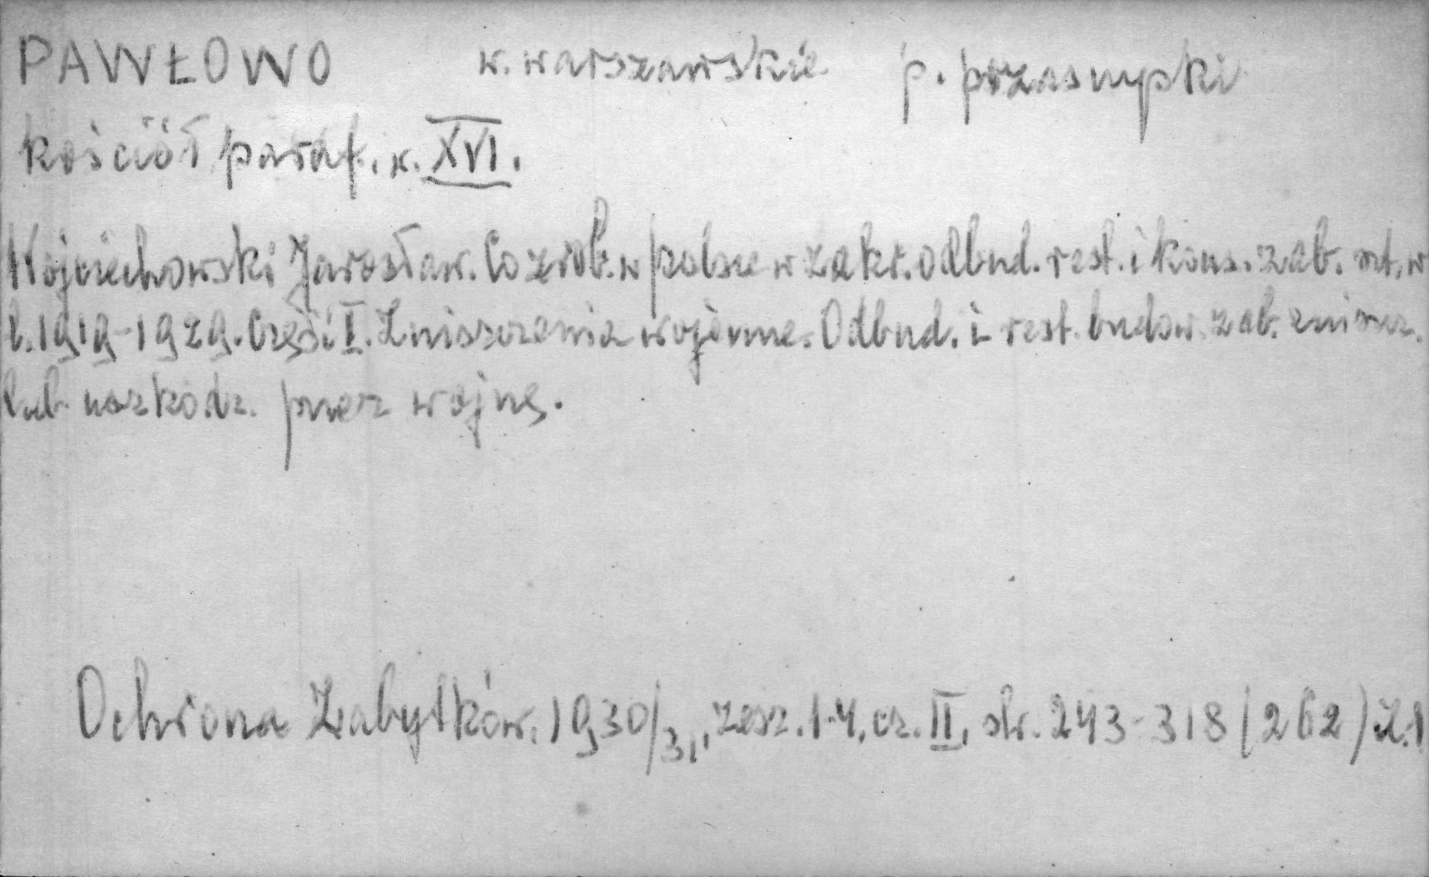 PAWŁOWO w. warszawskie p. przasnyski
kościół paraf. w. XVI.
Wojciechowski Jarosław. Co zrob. w Polsce w zakr. odbud. rest. i kons. zab. szt. w
l. 1919-1929. Część I. Zniszczenia wojenne. Odbud. i rest. budow. zab. zniszcz.
lub uszkodz. przez wojnę.
Ochrona Zabytków. 1930/31, zesz. 1-4, cz. II, str. 243-318 (262) il. 1